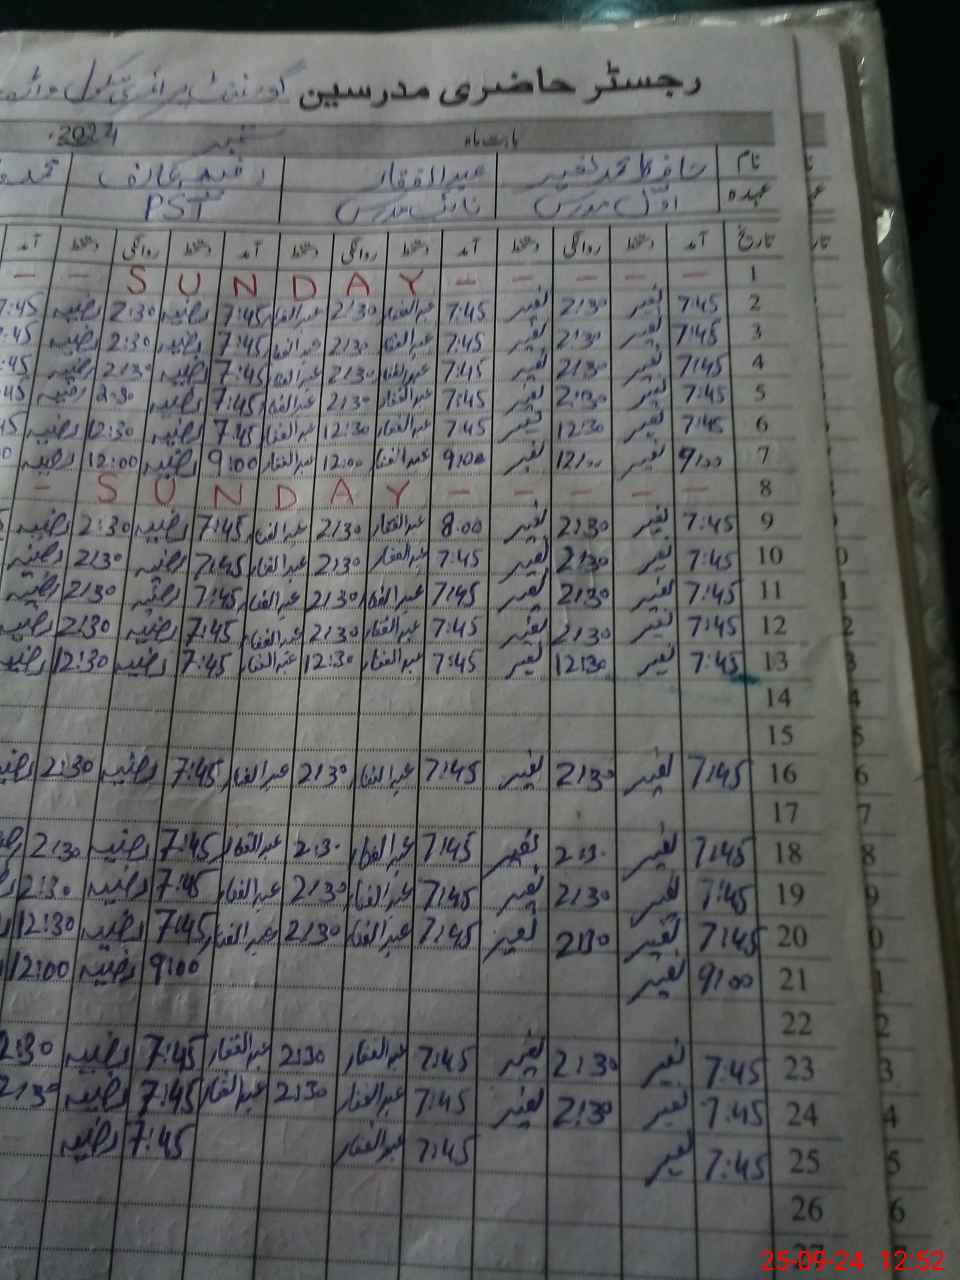 رجسٹر حاضری مدرسین گورنمنٹ پرائمری سکول
بابت ماہ ستمبر 2024ء
نام عبدالغفار
عہدہ اول مدرس نائب مدرس PST
تاریخ آمد دستخط روانگی دستخط آمد دستخط روانگی دستخط آمد دستخط روانگی دستخط آمد
1 - - - - - S U N D A Y - -
2 7:45 نصیر 2:30 نصیر 7:45 عبدالغفار 2:30 عبدالغفار 7:45 رضیہ 2:30 رضیہ 7:45
3 7:45 نصیر 2:30 نصیر 7:45 عبدالغفار 2:30 عبدالغفار 7:45 رضیہ 2:30 رضیہ :45
4 7:45 نصیر 2:30 نصیر 7:45 عبدالغفار 2:30 عبدالغفار 7:45 رضیہ 2:30 رضیہ :45
5 7:45 نصیر 2:30 نصیر 7:45 عبدالغفار 2:30 عبدالغفار 7:45 رضیہ 2:30 رضیہ 45
6 7:45 نصیر 12:30 نصیر 7:45 عبدالغفار 12:30 عبدالغفار 7:45 رضیہ 12:30 رضیہ
7 9:00 نصیر 12:00 نصیر 9:00 عبدالغفار 12:00 عبدالغفار 9:00 رضیہ 12:00 رضیہ
8 - - - - - S U N D A Y -
9 7:45 نصیر 2:30 نصیر 8:00 عبدالغفار 2:30 عبدالغفار 7:45 رضیہ 2:30 رضیہ
10 7:45 نصیر 2:30 نصیر 7:45 عبدالغفار 2:30 عبدالغفار 7:45 رضیہ 2:30 رضیہ
11 7:45 نصیر 2:30 نصیر 7:45 عبدالغفار 2:30 عبدالغفار 7:45 رضیہ 2:30 رضیہ
12 7:45 نصیر 2:30 نصیر 7:45 عبدالغفار 2:30 عبدالغفار 7:45 رضیہ 2:30 رضیہ
13 7:45 نصیر 12:30 نصیر 7:45 عبدالغفار 12:30 عبدالغفار 7:45 رضیہ 12:30 رضیہ
14
15
16 7:45 نصیر 2:30 نصیر 7:45 عبدالغفار 2:30 عبدالغفار 7:45 رضیہ 2:30 رضیہ
17
18 7:45 نصیر 2:30 نصیر 7:45 عبدالغفار 2:30 عبدالغفار 7:45 رضیہ 2:30
19 7:45 نصیر 2:30 نصیر 7:45 عبدالغفار 2:30 عبدالغفار 7:45 رضیہ 2:30
20 7:45 نصیر 2:30 نصیر 7:45 عبدالغفار 2:30 عبدالغفار 7:45 رضیہ 12:30
21 9:00 نصیر 9:00 رضیہ 12:00
22
23 7:45 نصیر 2:30 نصیر 7:45 عبدالغفار 2:30 عبدالغفار 7:45 رضیہ 2:30
24 7:45 نصیر 2:30 نصیر 7:45 عبدالغفار 2:30 عبدالغفار 7:45 رضیہ 2:30
25 7:45 نصیر 7:45 عبدالغفار 7:45 رضیہ
26
25-09-24 12:52